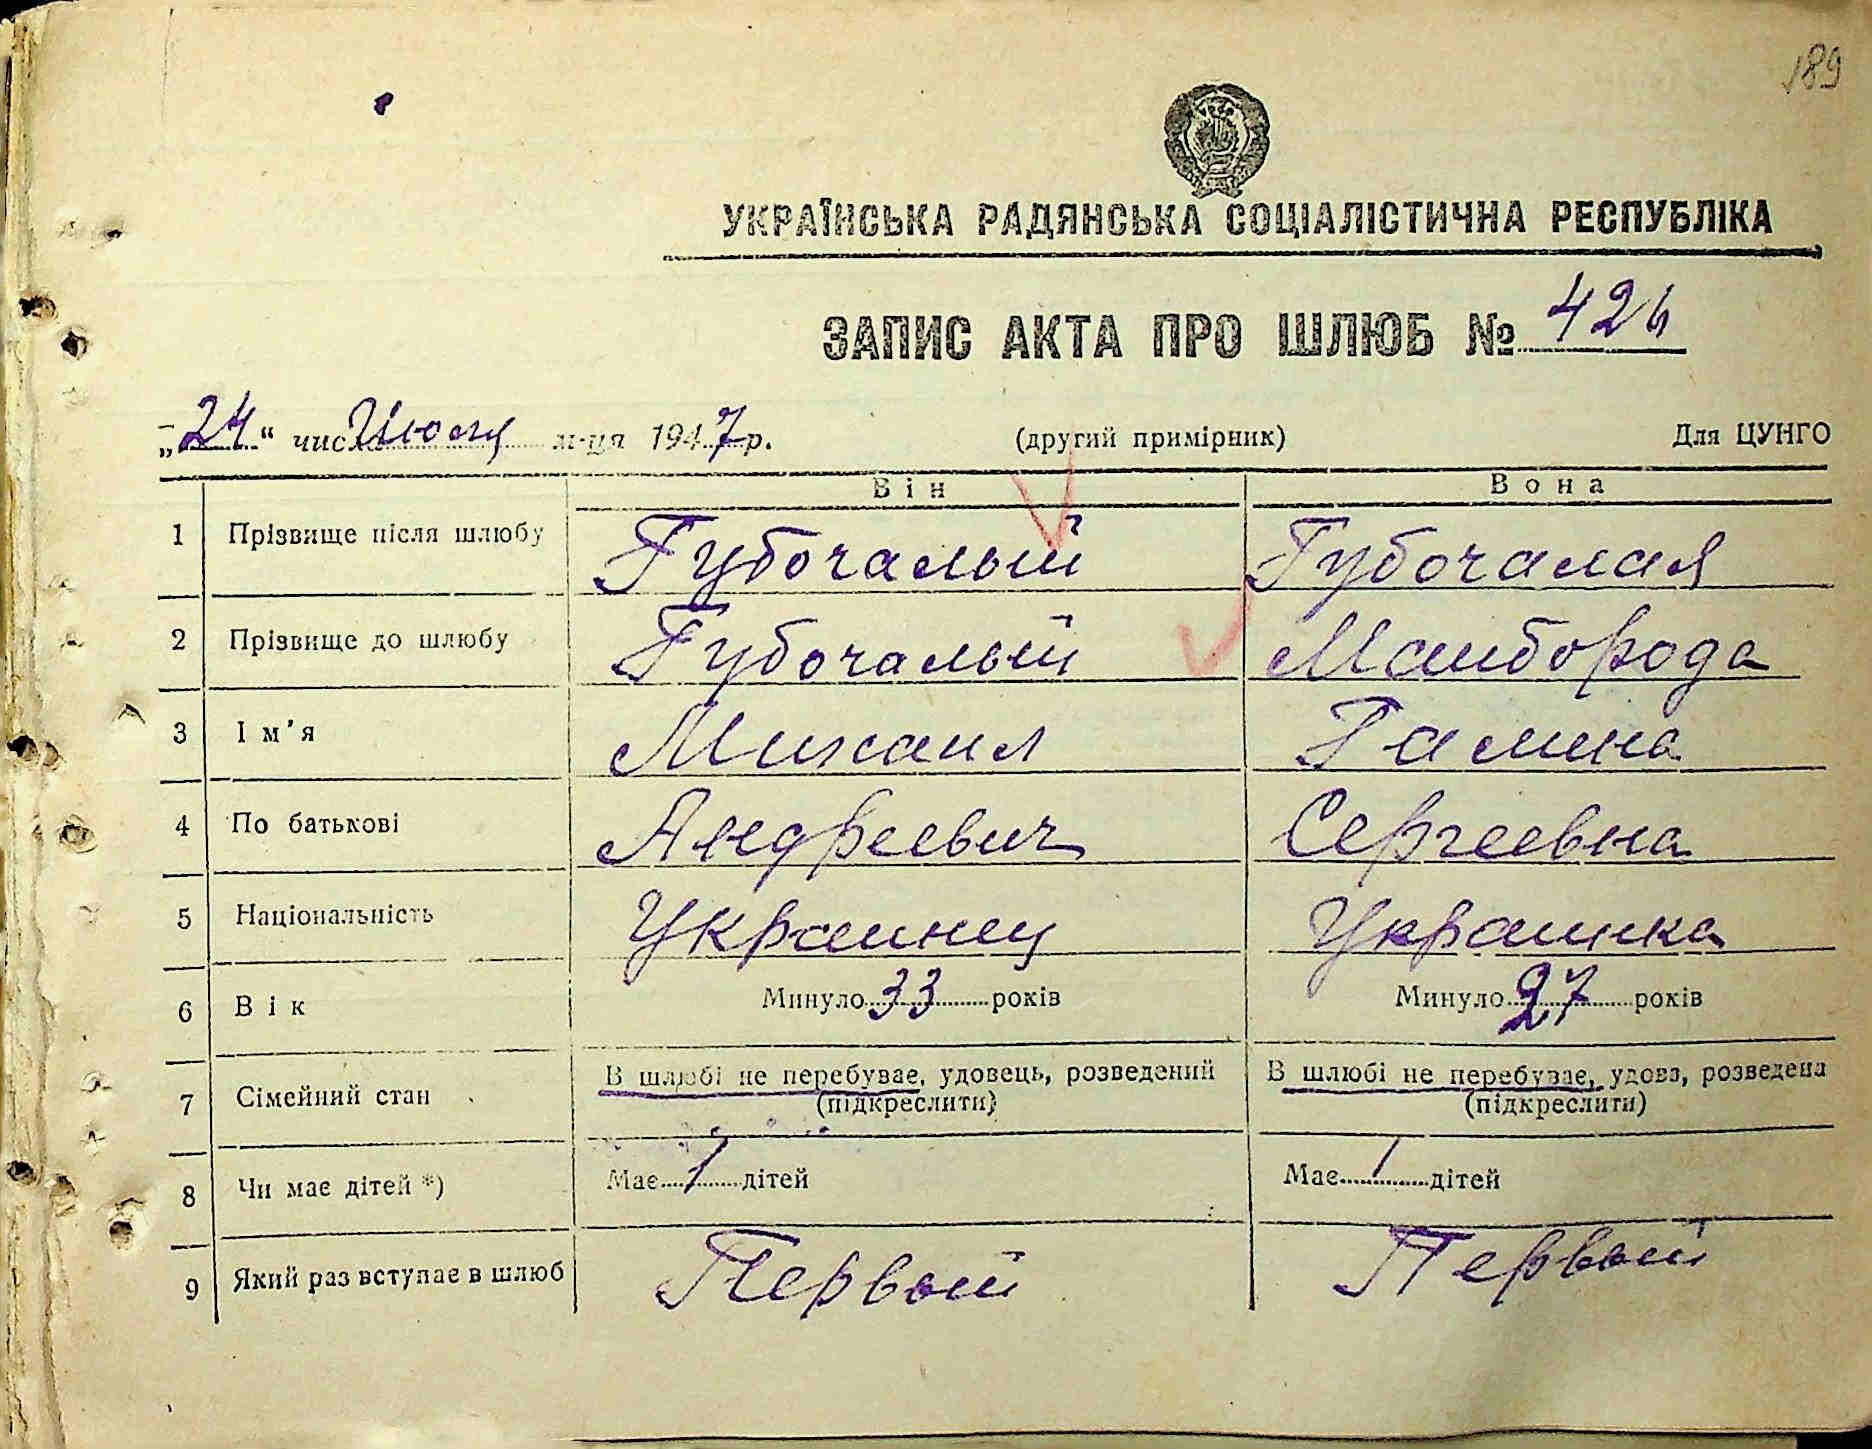 189
УКРАЇНСЬКА РАДЯНСЬКА СОЦІАЛІСТИЧНА РЕСПУБЛІКА
ЗАПИС АКТА ПРО ШЛЮБ № 426
„24“ числа Июля м-ця 1947 р. (другий примірник) Для ЦУНГО
Він Вона
1 Прізвище після шлюбу Губочалый Губочалая
2 Прізвище до шлюбу Губочалый Маиборода
3 Ім'я Михаил Галина
4 По батькові Андреевич Сергеевна
5 Національність Украинец Украинка
6 Вік Минуло 33 років Минуло 27 років
7 Сімейний стан В шлюбі не перебуває, удовець, розведений В шлюбі не перебуває, удова, розведена
(підкреслити) (підкреслити)
8 Чи має дітей *) Має 1 дітей Має 1 дітей
9 Який раз вступає в шлюб Первый Первый